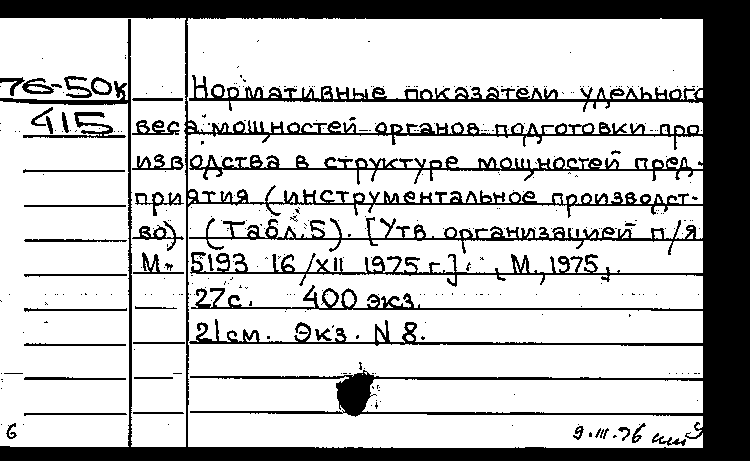 76-50к Нормативные показатели удельного
415 веса мощностей органов подготовки про
изводства в структуре мощностей пред-
приятия (инструментальное производст-
во). (Табл.5). [Утв. организацией п/я
М- 5193 16/XII 1975 г.]. [М., 1975].
27с. 400 экз.
21см. Экз. N 8.
6 9.III.76